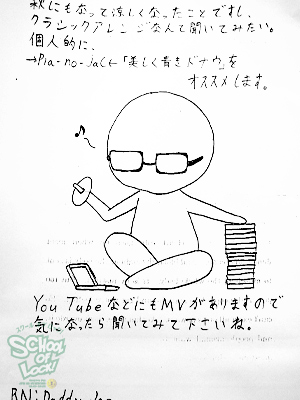 秋にもなって涼しくなったことですし、
クラシックアレンジなんて聞いてみたい。
個人的に、
→Pia-no-jaC←「美しく青きドナウ」を
オススメします。
You TubeなどにもMVがありますので
気になったら聞いてみて下さいね。
SCHOOL
OF
LOCK!
RN:Daddy